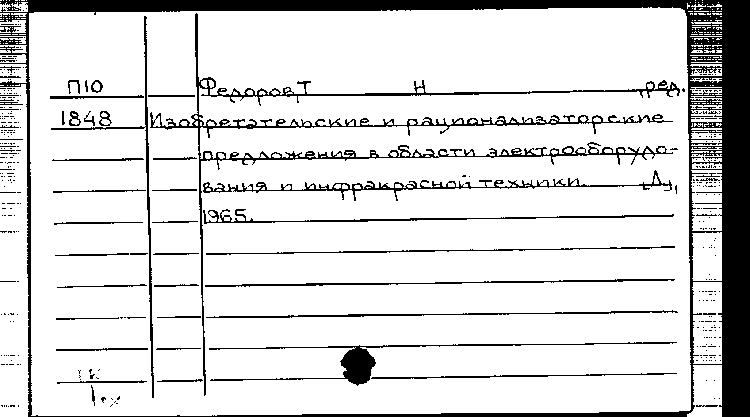 П10 Федоров, Т Н ,ред.
1848 Изобретательские и рационализаторские
предложения в области электрооборудо-
вания и инфракрасной техники. Л.,
1965.